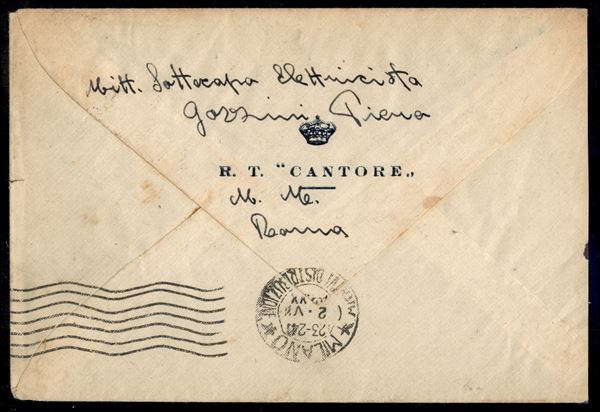 Mitt. Sottocapo Elettricista
Gozzini Piero
R. T. "CANTORE„
M. Me.
Roma
MILANO
23-24
2 · VII
XX
DISTRIBUZIONE